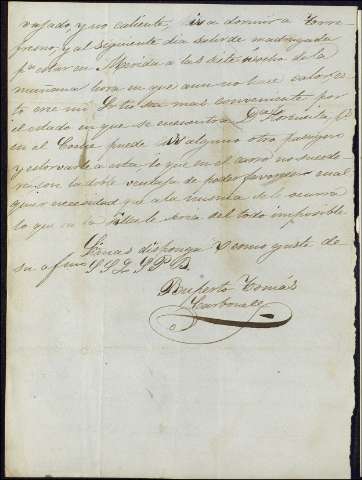 y no caliente, ir a dormir a Torre
fresno, y al siguiente dia salir de madrugada
pª estar en Merida a las siete u ocho de la
mañana hora en que aun no hace calor es
to cre mi Sr. mas conveniente por
el estado en que se encuentra Dª
en el Coche puede ir algun otro pasagero
y estorvarle a esta, lo que en el carro no sucede
ra, con la doble ventaja de poder favorecer cual
quier necesidad que a la misma se le ocurra
lo que en la Silla le seria del todo imposible
disponga V como guste de
su afmo S S Q S P B
Ruperto Tomás
Carbonell